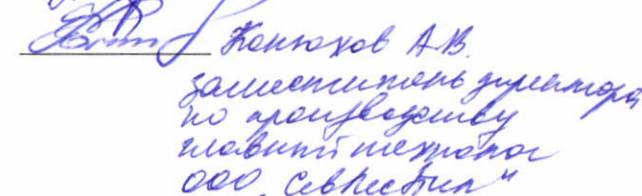 Конюхов А.В.
заместитель директора
по производству
главный технолог
ООО "СевЛесПил"